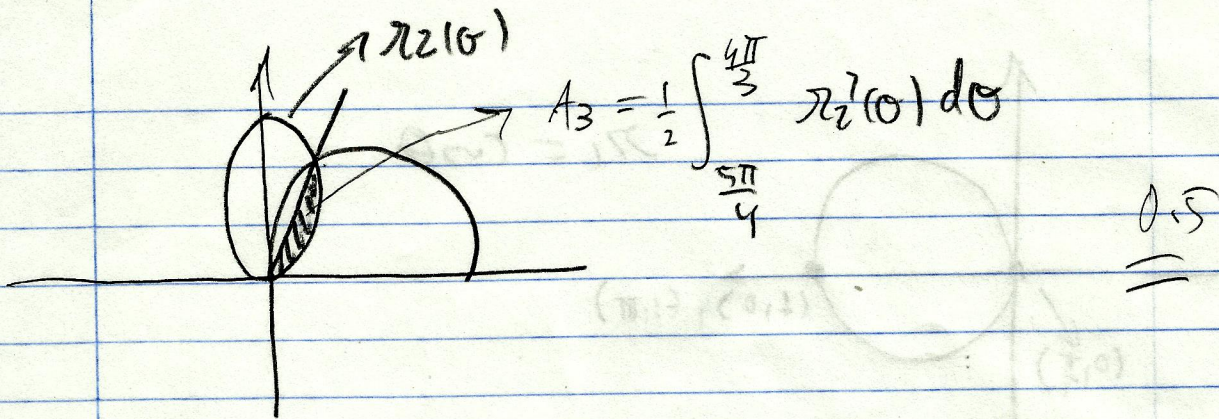 r₂(θ)
A₃ = ½ ∫_{5π/4}^{4π/3} r₂²(θ) dθ
0.5